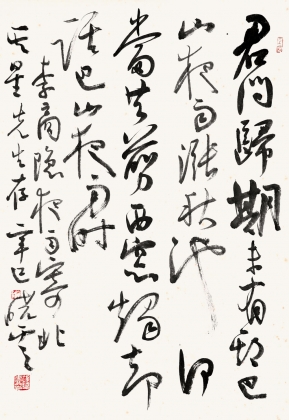 君問歸期未有期巴
山夜雨漲秋池何
當共剪西窗燭却
話巴山夜雨时
李商隐夜雨寄北
星先生存辛巳晓云